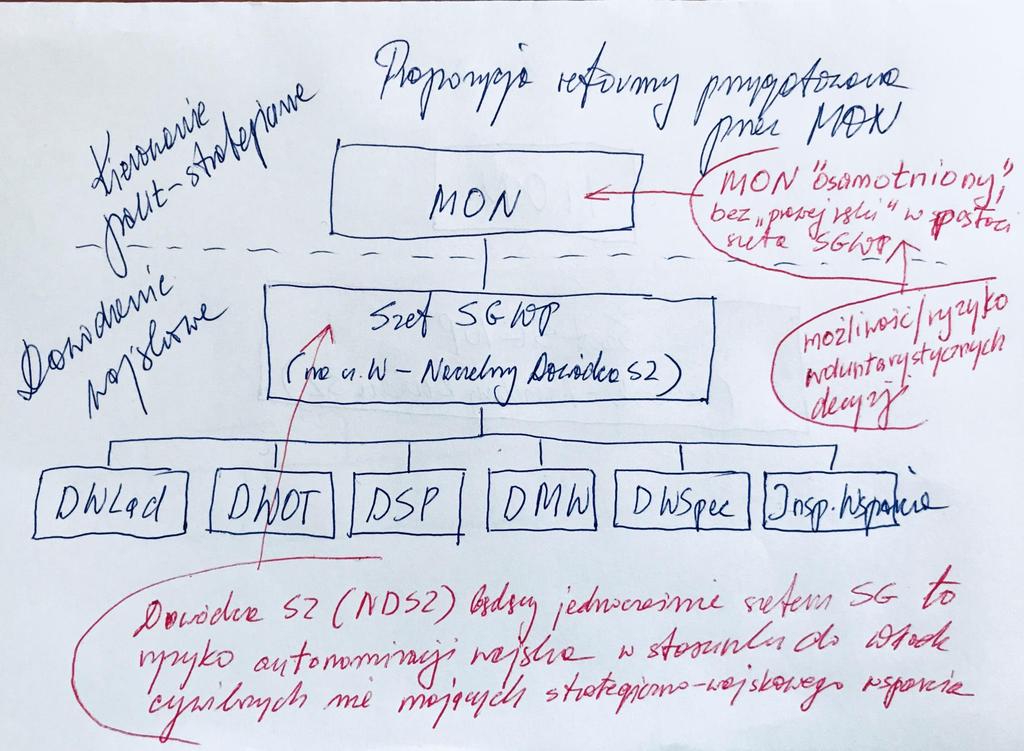 Propozycja reformy przygotowana
przez MON
Kierowanie
polit-strategiczne
MON
MON "osamotniony",
bez „prawej ręki" w postaci
szefa SGWP
Dowodzenie
wojskowe
Szef SGWP
(na cz. W - Naczelny Dowódca SZ)
możliwość/ryzyko
woluntarystycznych
decyzji
DWLąd
DWOT
DSP
DMW
DWSpec
Insp. Wsparcia
Dowódca SZ (NDSZ) będący jednocześnie szefem SG to
ryzyko autonomizacji wojska w stosunku do władz
cywilnych nie mających strategiczno-wojskowego wsparcia